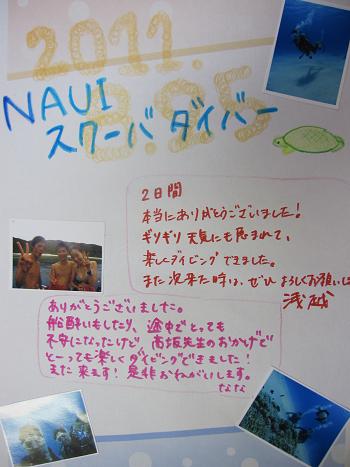 2011.
8.25
NAUI
スクーバ ダイバー
2日間
本当にありがとうございました!
ギリギリ天気にも恵まれて、
楽しくダイビングできました。
また次来た時は、ぜひよろしくお願いし
浅越
ありがとうございました。
船酔いもしたり、途中でとっても
不安になったけど、高坂先生のおかげで
とーっても楽しくダイビングできました!
また来ます!是非おねがいします。
なな